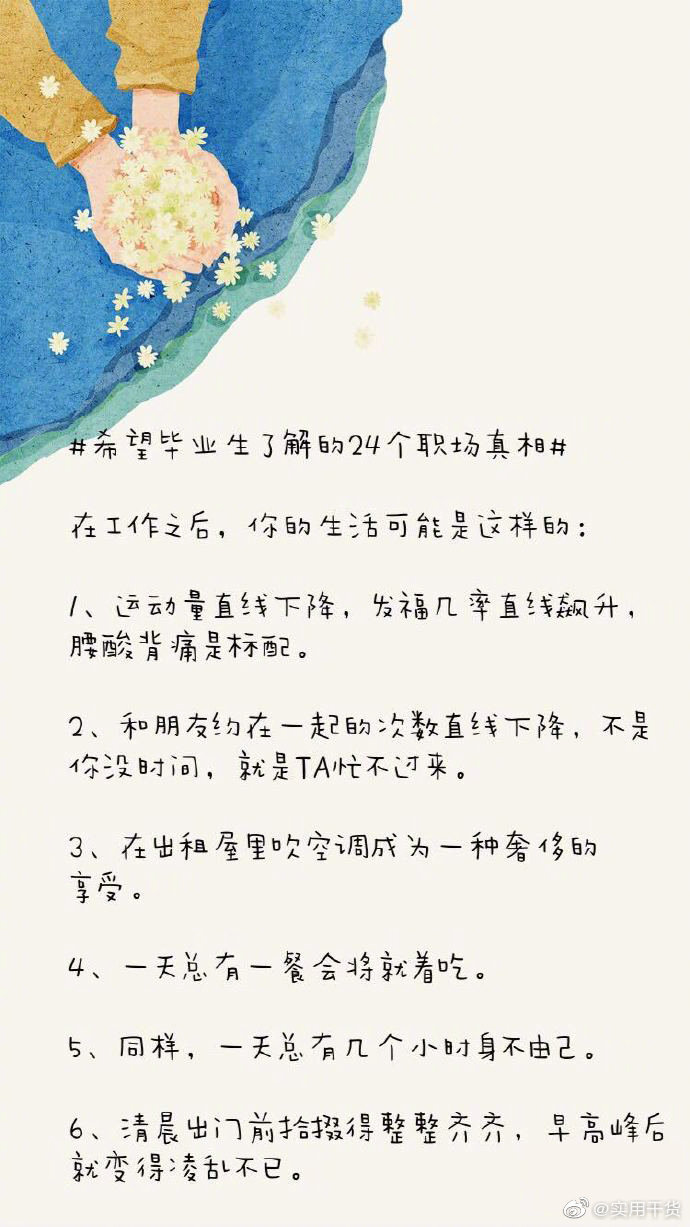 #希望毕业生了解的24个职场真相#
在工作之后，你的生活可能是这样的：
1、运动量直线下降，发福几率直线飙升，
腰酸背痛是标配。
2、和朋友约在一起的次数直线下降，不是
你没时间，就是TA忙不过来。
3、在出租屋里吹空调成为一种奢侈的
享受。
4、一天总有一餐会将就着吃。
5、同样，一天总有几个小时身不由己。
6、清晨出门前拾掇得整整齐齐，早高峰后
就变得凌乱不已。
@实用干货